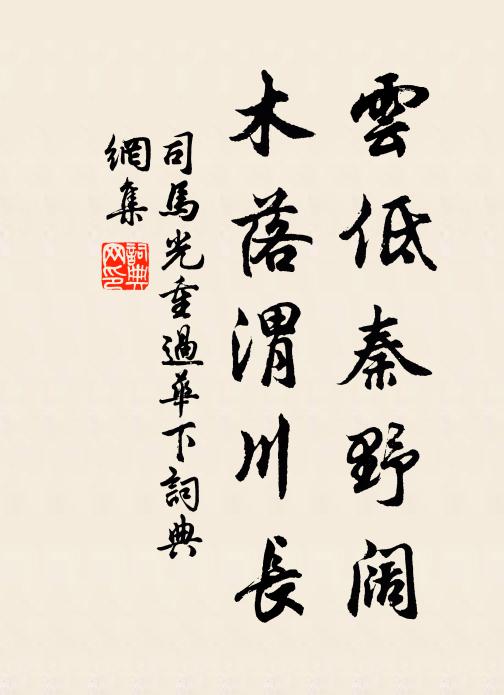 雲低秦野阔
木落渭川長
司馬光重過華下詞典
網集
詞典网印